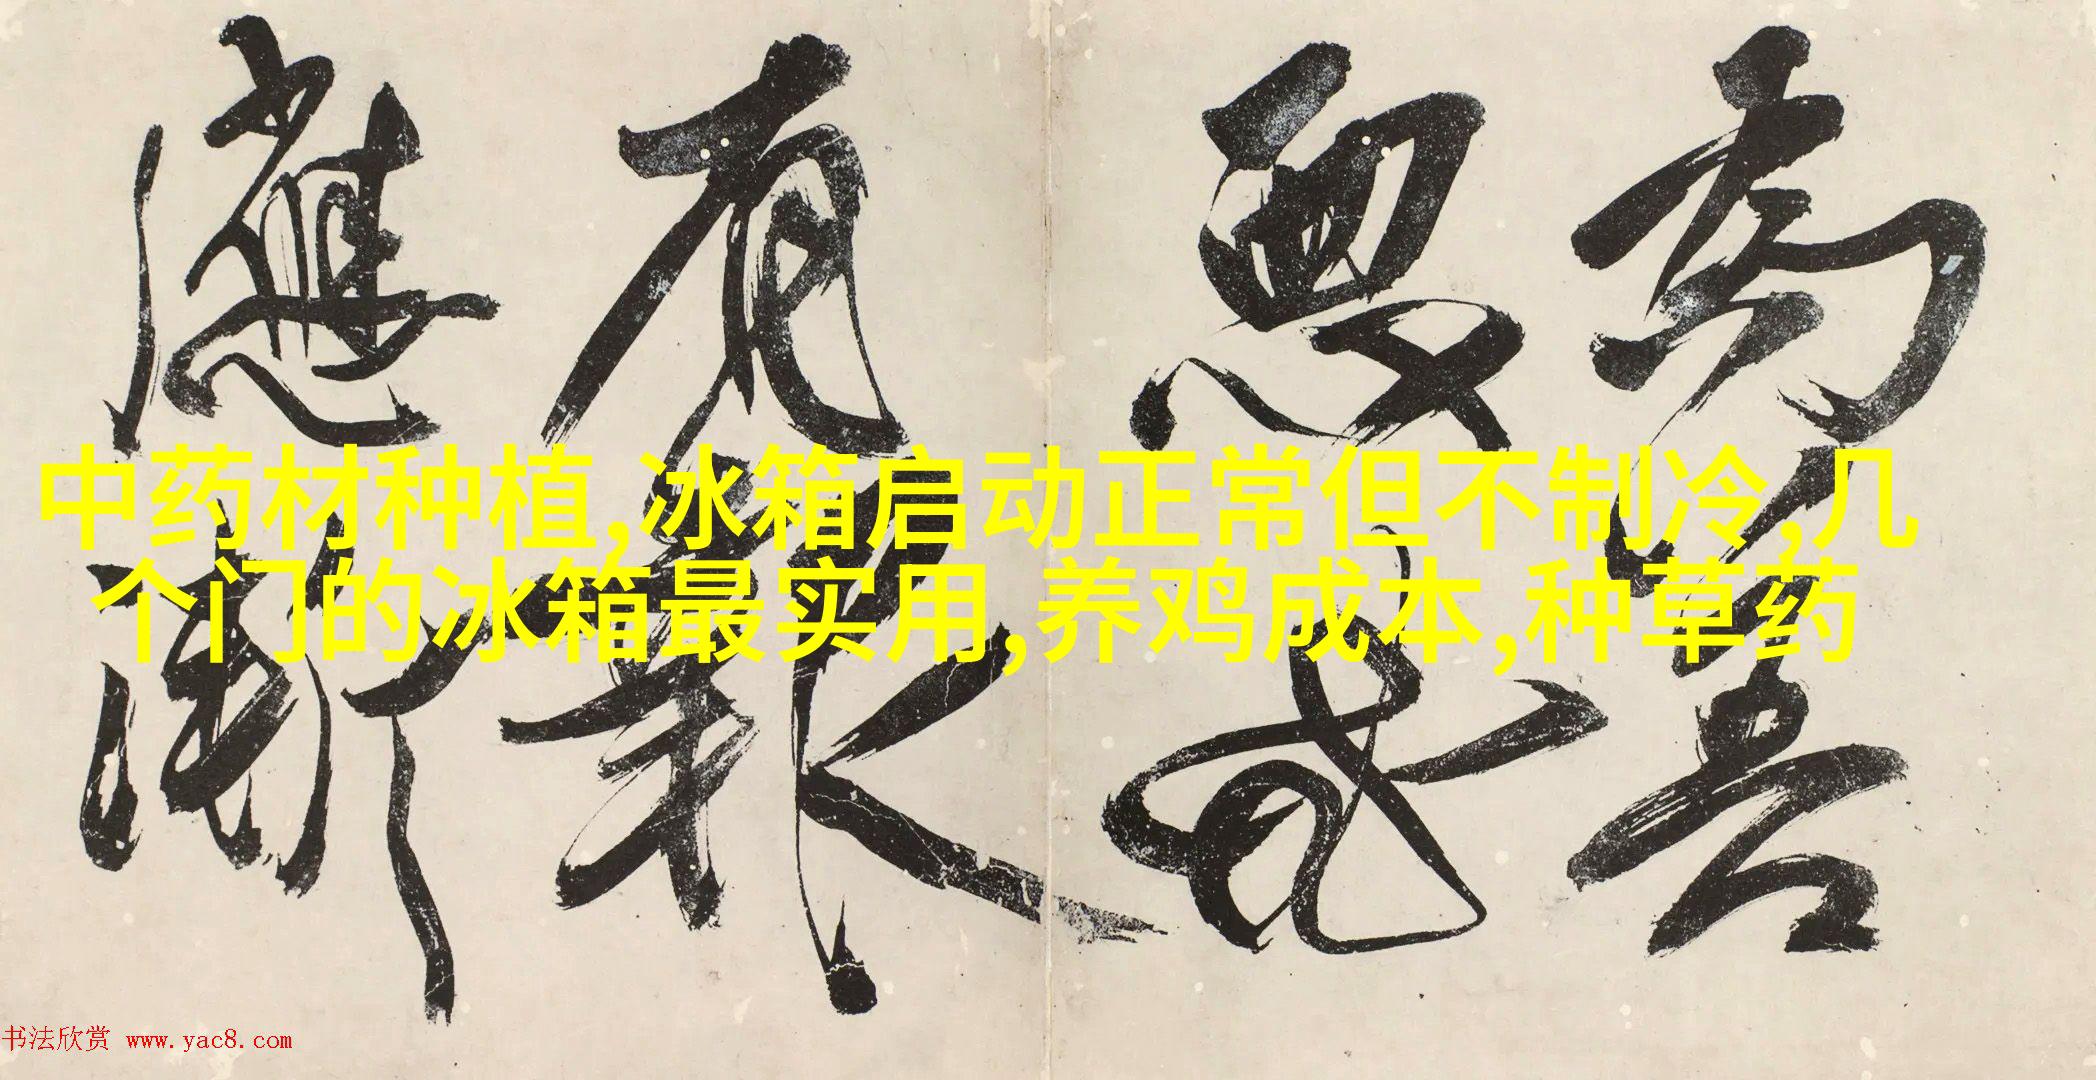 中药材种植,冰箱启动正常但不制冷,几
个门的冰箱最实用,养鸡成本,种草药
為善
惡
有報
應漸
书法欣赏 www.yac8.com